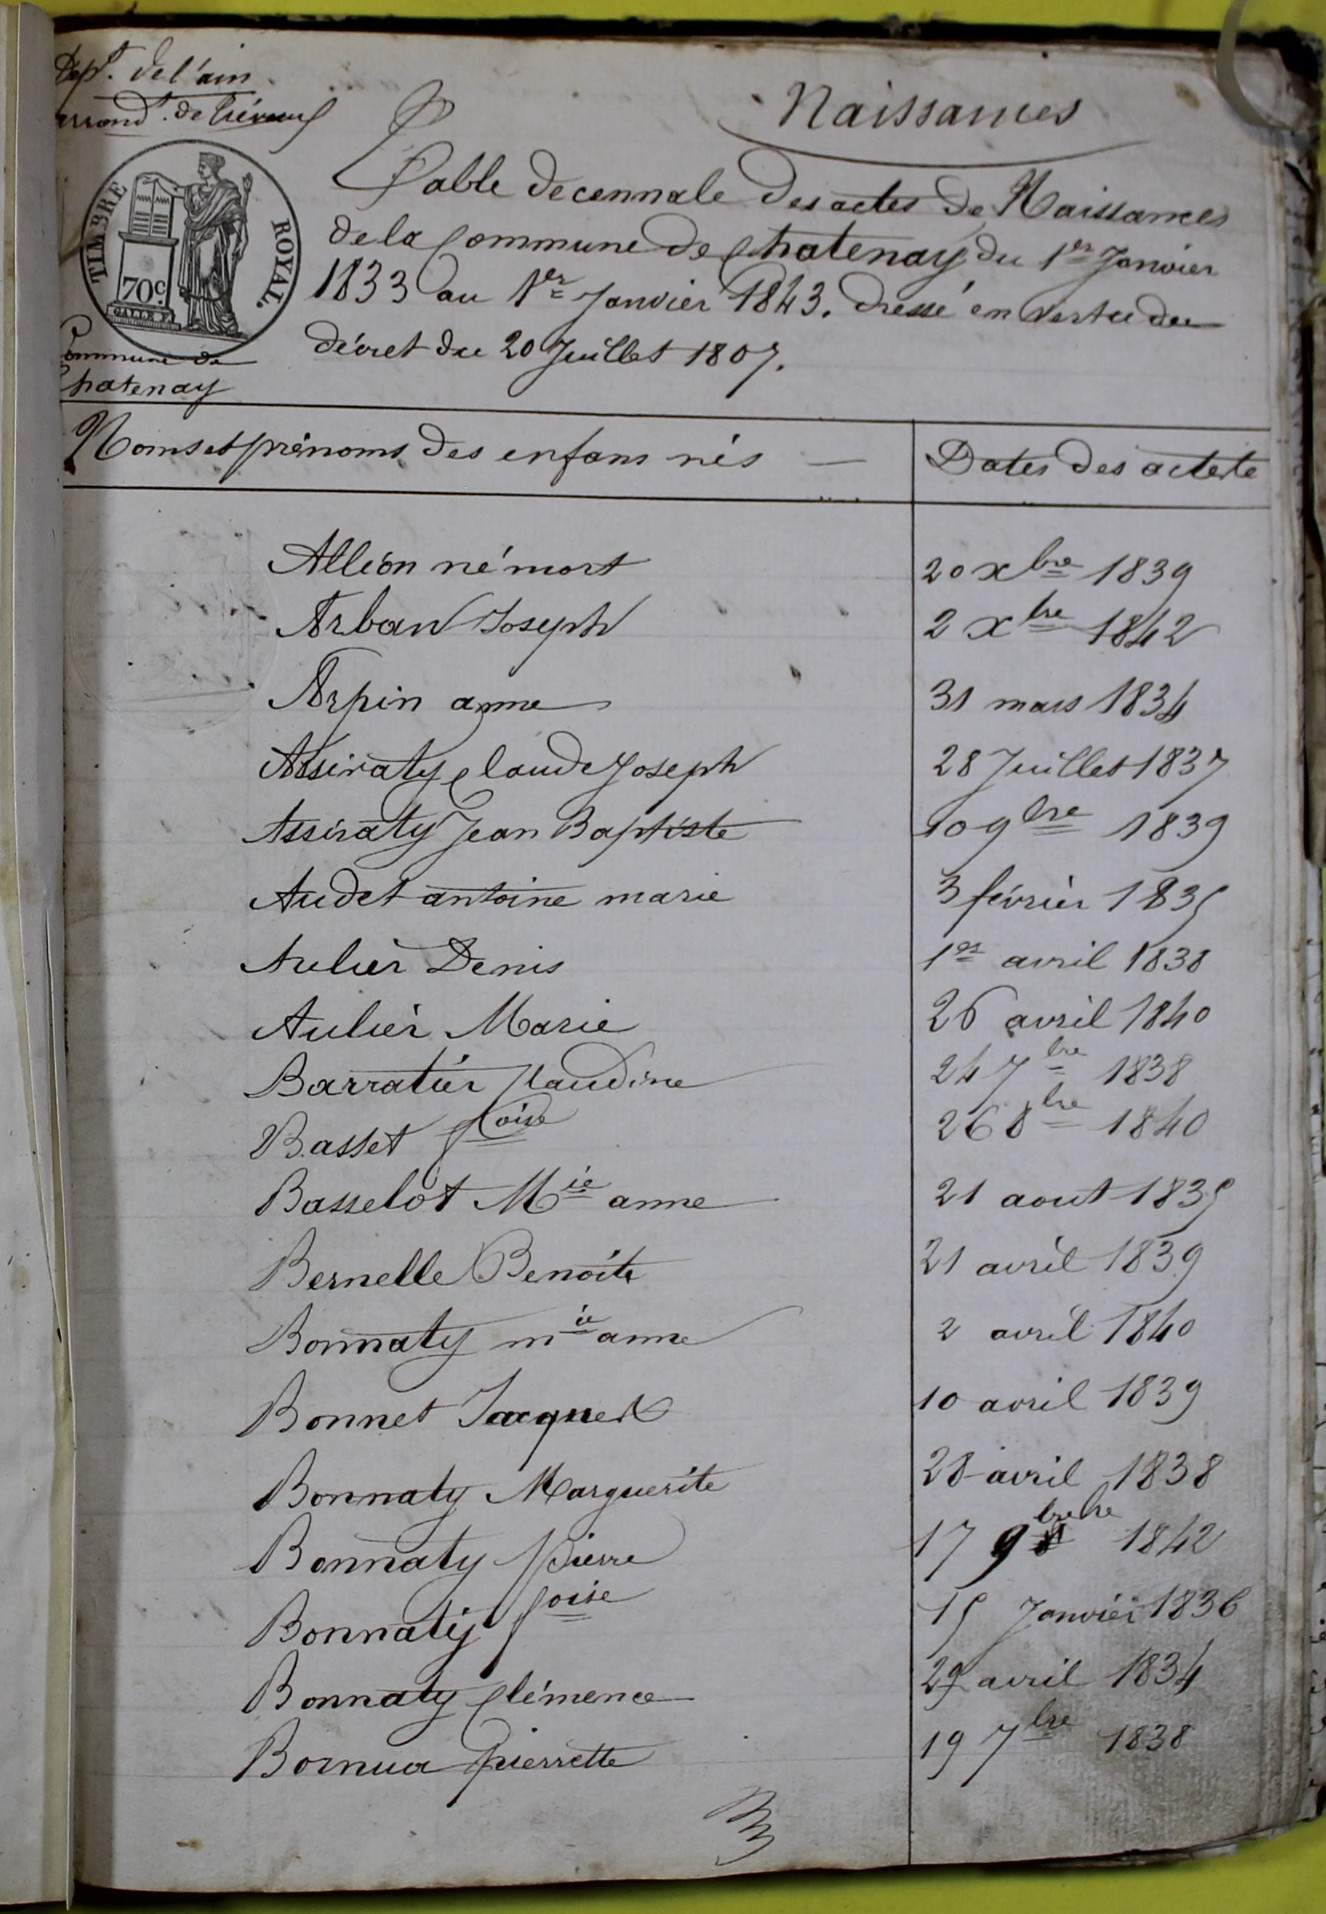 Dépt. de l'ain
arrond.t de Trévoux
TIMBRE ROYAL
70c.
Commune de
Chatenay
Naissances
Table décennale des actes de Naissances
de la Commune de Chatenay du 1er Janvier
1833 au 1er Janvier 1843. dressé en vertu du
décret du 20 Juillet 1807.
Noms et prénoms des enfans nés — Dates des actes
Alléon né mort 20 Xbre 1839
Arban Joseph 2 Xbre 1842
Arpin anne 31 mars 1834
Assiraty Claude Joseph 28 Juillet 1837
Assiraty Jean Baptiste 10 9bre 1839
Audet antoine marie 3 février 1835
Aulier Denis 1er avril 1838
Aulier Marie 26 avril 1840
Barratier Claudine 24 7bre 1838
Basset foise 26 8bre 1840
Basselot Mie anne 21 aout 1835
Bernelle Benoite 21 avril 1839
Bonnaty mie anne 2 avril 1840
Bonnet Jacques 10 avril 1839
Bonnaty Marguerite 28 avril 1838
Bonnaty pierre 17 9bre 1842
Bonnaty foise 15 Janvier 1836
Bonnaty Clémence 29 avril 1834
Bornua pierrette 19 7bre 1838